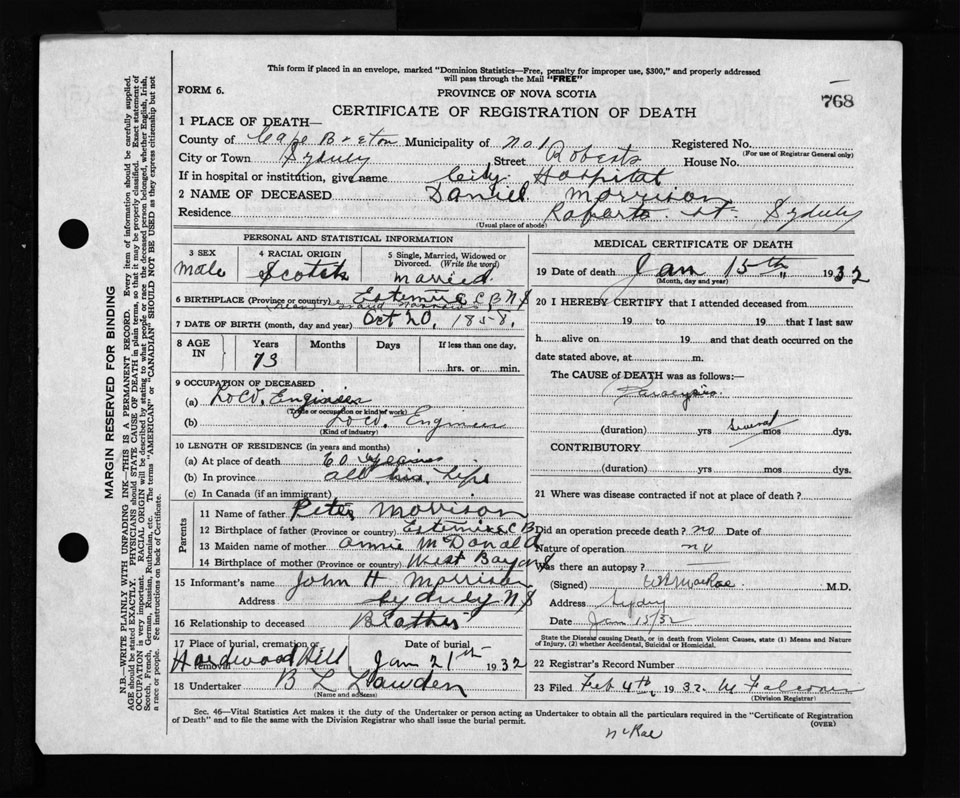 This form if placed in an envelope, marked "Dominion Statistics—Free, penalty for improper use, $300," and properly addressed
will pass through the Mail "FREE"
FORM 6.
PROVINCE OF NOVA SCOTIA
768
CERTIFICATE OF REGISTRATION OF DEATH
1 PLACE OF DEATH—
County of Cape Breton Municipality of No 1 Registered No.
(For use of Registrar General only)
City or Town Sydney Street Roberts House No.
If in hospital or institution, give name City Hospital
2 NAME OF DECEASED Daniel Morrison
Residence Roberts St. Sydney
(Usual place of abode)
PERSONAL AND STATISTICAL INFORMATION
3 SEX 4 RACIAL ORIGIN 5 Single, Married, Widowed or
Divorced. (Write the word)
male Scotch married
6 BIRTHPLACE (Province or country) C B N S
7 DATE OF BIRTH (month, day and year) Oct 20, 1858.
8 AGE IN Years Months Days If less than one day,
73
hrs. or min.
9 OCCUPATION OF DECEASED
(a) Loco. Engineer
(Trade or occupation or kind of work)
(b) Loco. Engineer
(Kind of industry)
10 LENGTH OF RESIDENCE (in years and months)
(a) At place of death 60 years
(b) In province all his Life
(c) In Canada (if an immigrant)
Parents
11 Name of father Peter Morrison
12 Birthplace of father (Province or country) C B
13 Maiden name of mother Annie McDonald
14 Birthplace of mother (Province or country) West Bay
15 Informant's name John H Morrison
Address Sydney N S
16 Relationship to deceased Brother
17 Place of burial, cremation or removal Date of burial
Hardwood Hill Jan 21th 1932
18 Undertaker B L
(Name and address)
MEDICAL CERTIFICATE OF DEATH
19 Date of death Jan 15th 1932
(Month, day and year)
20 I HEREBY CERTIFY that I attended deceased from
19 to 19 that I last saw
h alive on 19 and that death occurred on the
date stated above, at m.
The CAUSE of DEATH was as follows:
Paralysis
(duration) yrs several mos dys.
CONTRIBUTORY.
(duration) yrs. mos. dys.
21 Where was disease contracted if not at place of death?
Did an operation precede death? no Date of
Nature of operation no
Was there an autopsy?
(Signed) MacRae M.D.
Address Sydney
Date Jan 15/32
State the Disease causing Death, or in death from Violent Causes, state (1) Means and Nature
of Injury, (2) whether Accidental, Suicidal or Homicidal.
22 Registrar's Record Number
23 Filed Feb 4th, 1932
(Division Registrar)
Sec. 46—Vital Statistics Act makes it the duty of the Undertaker or person acting as Undertaker to obtain all the particulars required in the "Certificate of Registration
of Death" and to file the same with the Division Registrar who shall issue the burial permit.
(OVER)
McRae
MARGIN RESERVED FOR BINDING
N.B.—WRITE PLAINLY WITH UNFADING INK—THIS IS A PERMANENT RECORD. Every item of information should be carefully supplied.
AGE should be stated EXACTLY. PHYSICIANS should STATE CAUSE OF DEATH in plain terms, so that it may be properly classified. Exact statement of
OCCUPATION is very important. RACIAL ORIGIN will be described by stating to what people or race the deceased person belonged, whether English, Irish,
Scotch, French, German, Russian, Ruthenian, etc. The terms "AMERICAN" or "CANADIAN" SHOULD NOT BE USED as they express citizenship but not
a race or people. See instructions on back of Certificate.